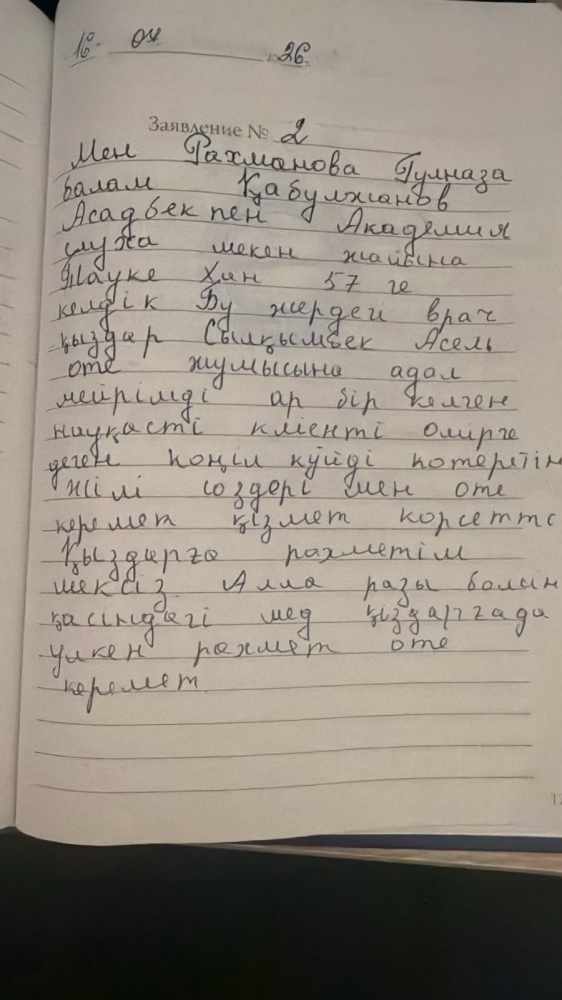 16. 04 26.
Заявление № 2
Мен Рахманова Гулназа
балам Қабулжанов
Асадбек пен Академия
слуха мекен жайына
Тауке Хан 57 ге
келдік Бу жердеги врач
қыздар Сылқымбек Асель
оте жумысына адал
мейрімді ар бір келген
науқасті кліенті омирге
деген коңіл күйді котеретін
жілі создері мен оте
керемет қізмет корсетто
Қыздарга рахметім
шексіз Алла разы болсін
қасіндагі мед қіздаргада
улкен рахмет оте
керемет